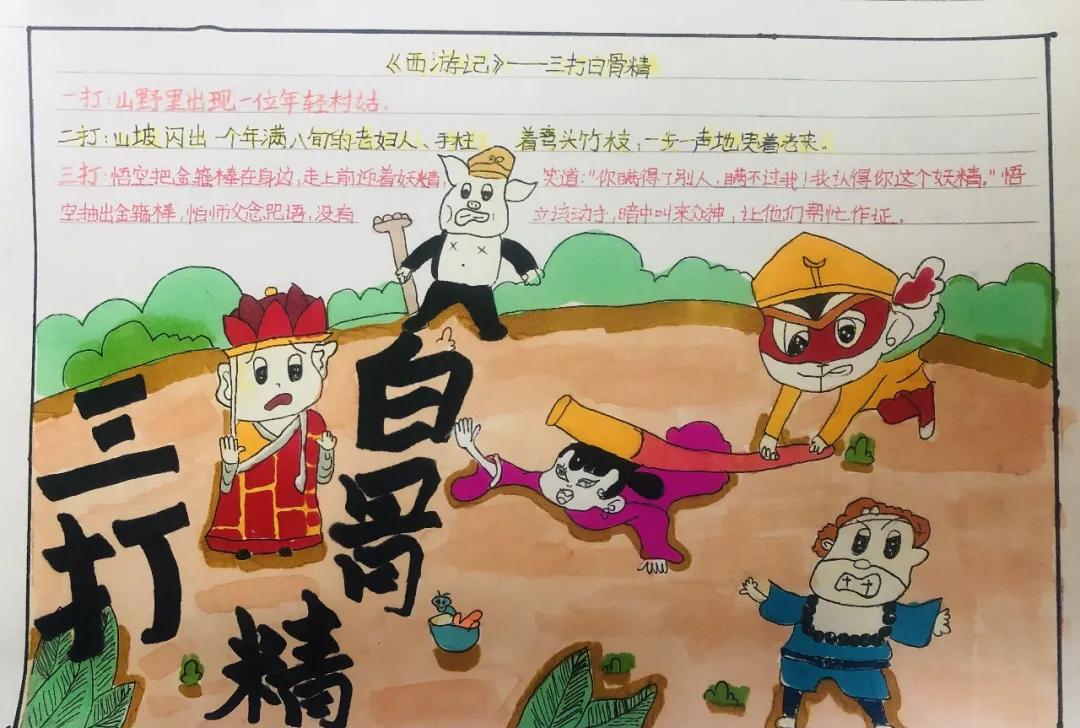 《西游记》——三打白骨精
一打:山野里出现一位年轻村姑。
二打:山坡闪出一个年满八旬的老妇人、手柱着弯头竹枝,一步一声地哭着走来。
三打:悟空把金箍棒在身边,走上前迎着妖精,笑道:“你瞒得了别人,瞒不过我!我认得你这个妖精。”悟
空抽出金箍棒,怕师父念咒语,没有立该动手,暗中叫来众神,让他们帮忙作证。
三打
白骨精